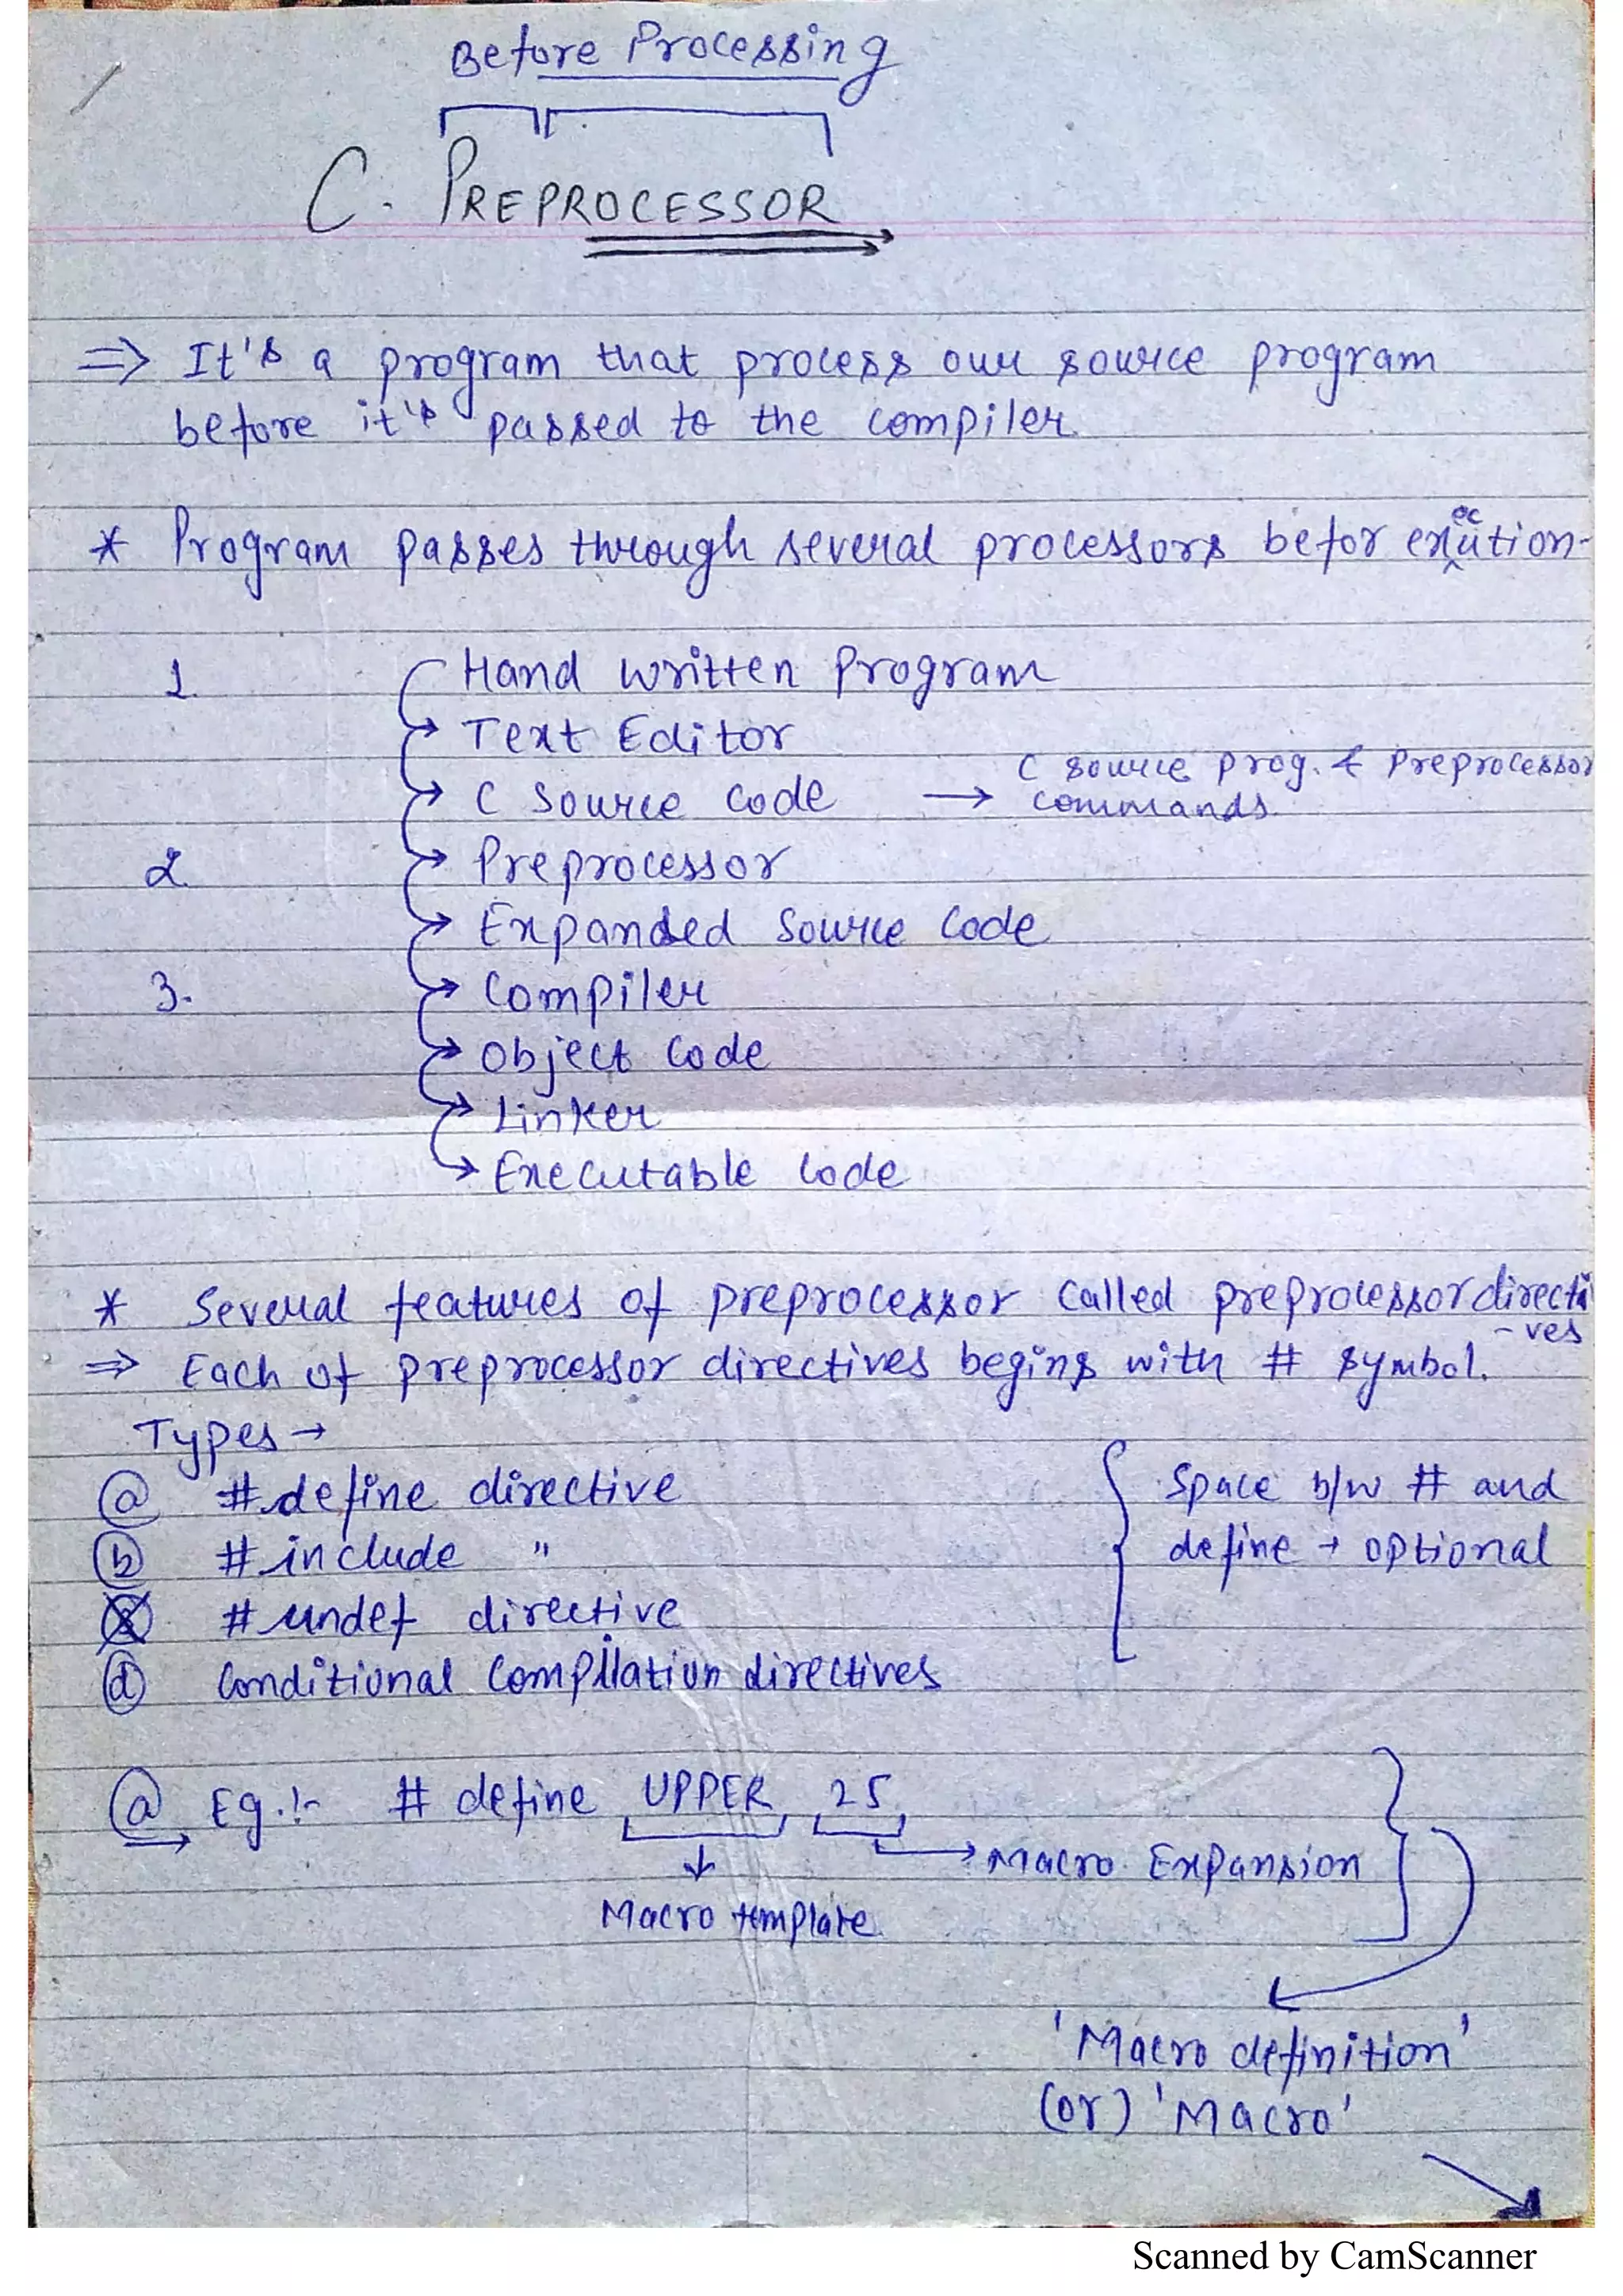 Before Processing
C. PREPROCESSOR
⇒ It's a program that process our source program
before it's passed to the compiler.
* Program passes through several processors befor exucution-
1. Hand written Program
→ Text Editor
→ C Source Code → C source prog. & Preprocessor
commands.
2. → Preprocessor
→ Expanded Source Code
3. → Compiler
→ Object Code
→ Linker
→ Executable Code
* Several features of preprocessor called preprocessor directi
-ves
⇒ Each of preprocessor directives begins with # symbol.
Types →
(a) #define directive
(b) #include "
#undef directive
(d) Conditional Compilation directives
{ Space b/w # and
define → optional
(a) Eg.:- # define UPPER 25
→ Macro Expansion
↓
Macro template
'Macro definition'
(or) 'Macro'
Scanned by CamScanner